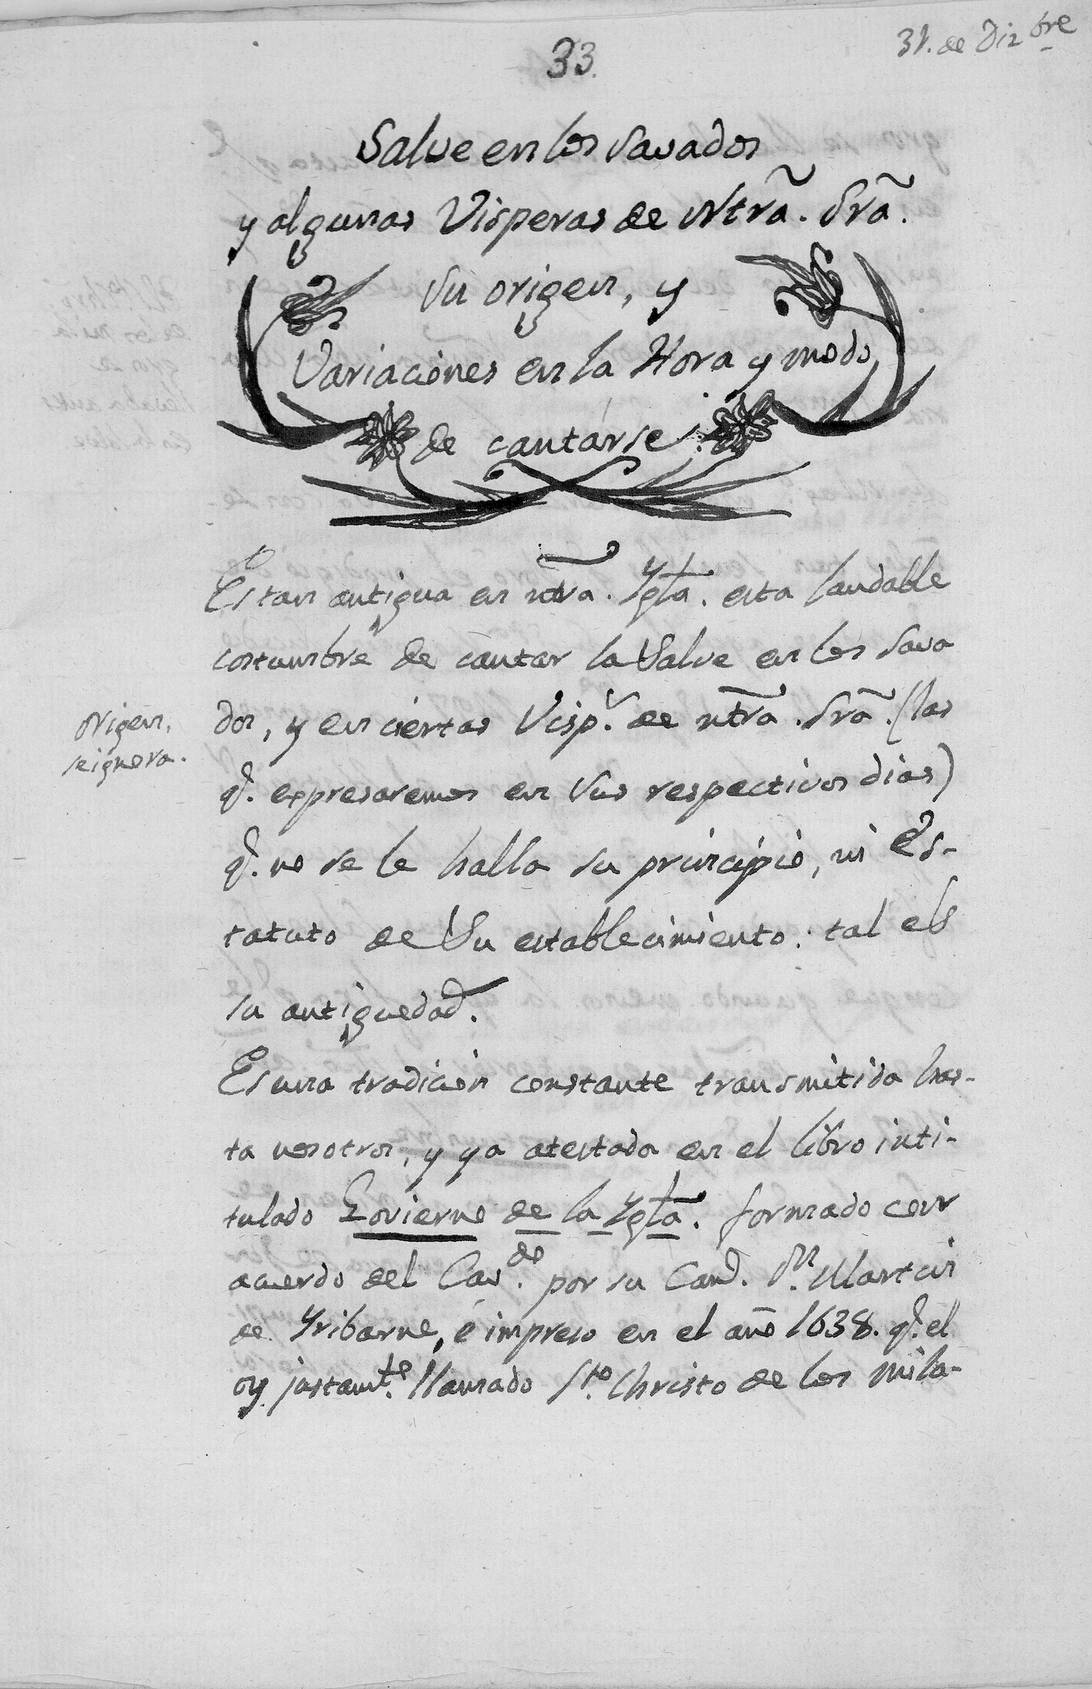 33.
31. de Dizbre
Salve en los Savados
y algunas Visperas de Ntra. Sra.
Su origen, y
Variaciónes en la Hora y modo
de cantárse.
Es tan antigua en ntra. Ygla. esta laudable
costumbre de cantar la Salve en los Sava
dos, y en ciertas Visp.s de ntra. Sra. (las
q.e expresaremos en sus respectivos dias)
q.e no se le halla su principio, ni Es-
tatuto de su establecimiento: tal es
su antiguedad.
Origen,
se ignora.
Es una tradición constante transmitida has-
ta nosotros, y ya atestada en el libro inti-
tulado Govierno de la Ygla. formado con
acuerdo del Cav.do por su Can.o D.n Martin
de Yribarne, é impreso en el año 1638. q.e el
oy justam.te llamado S.to Christo de los mila-